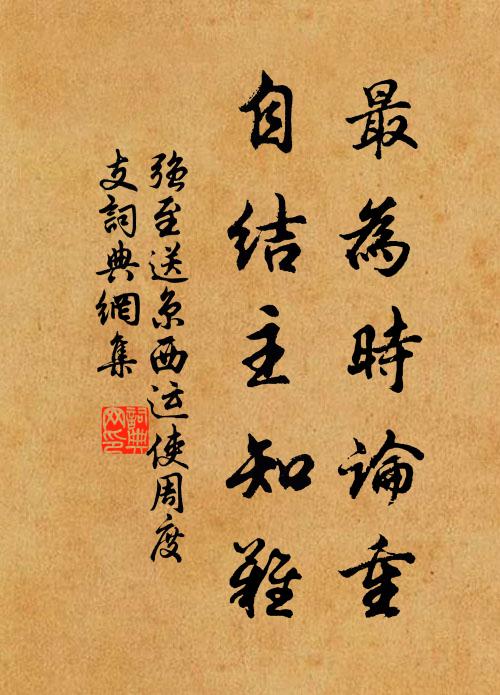 最為時論重
自結主知難
強至送京西运使周度
支詞典網集
詞典网印